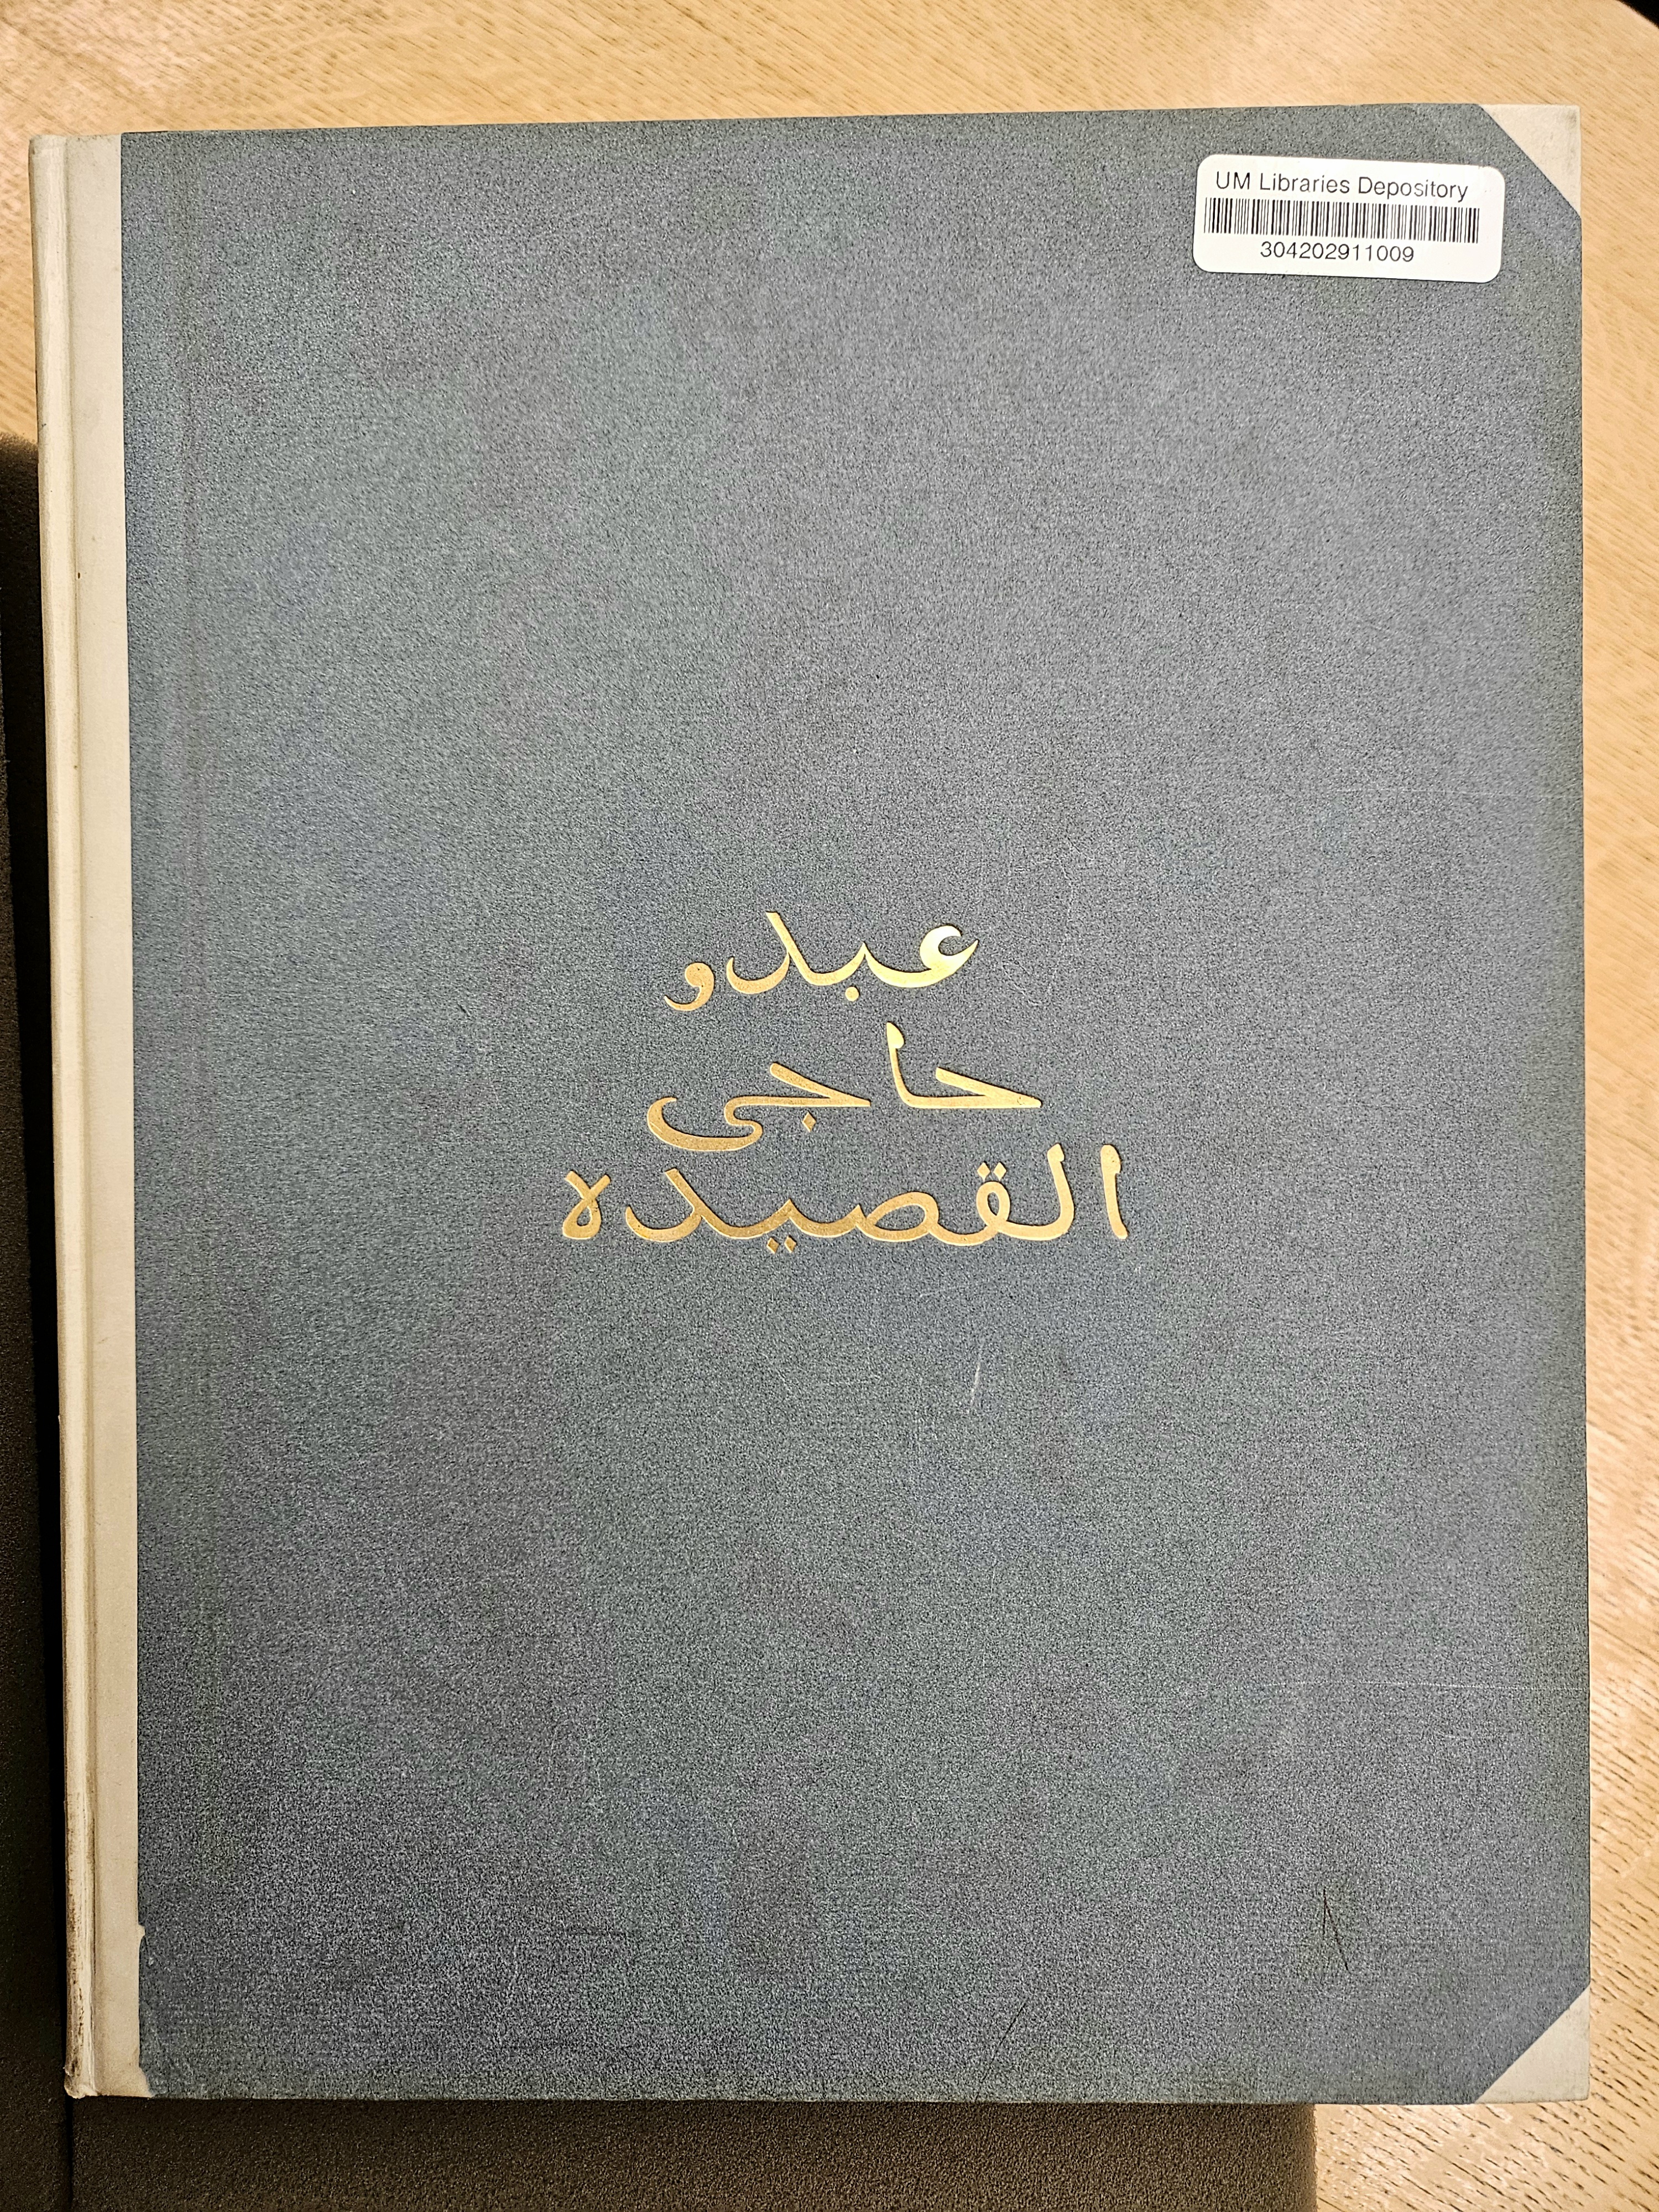 UM Libraries Depository
304202911009
عبدو
حاجى
القصيده